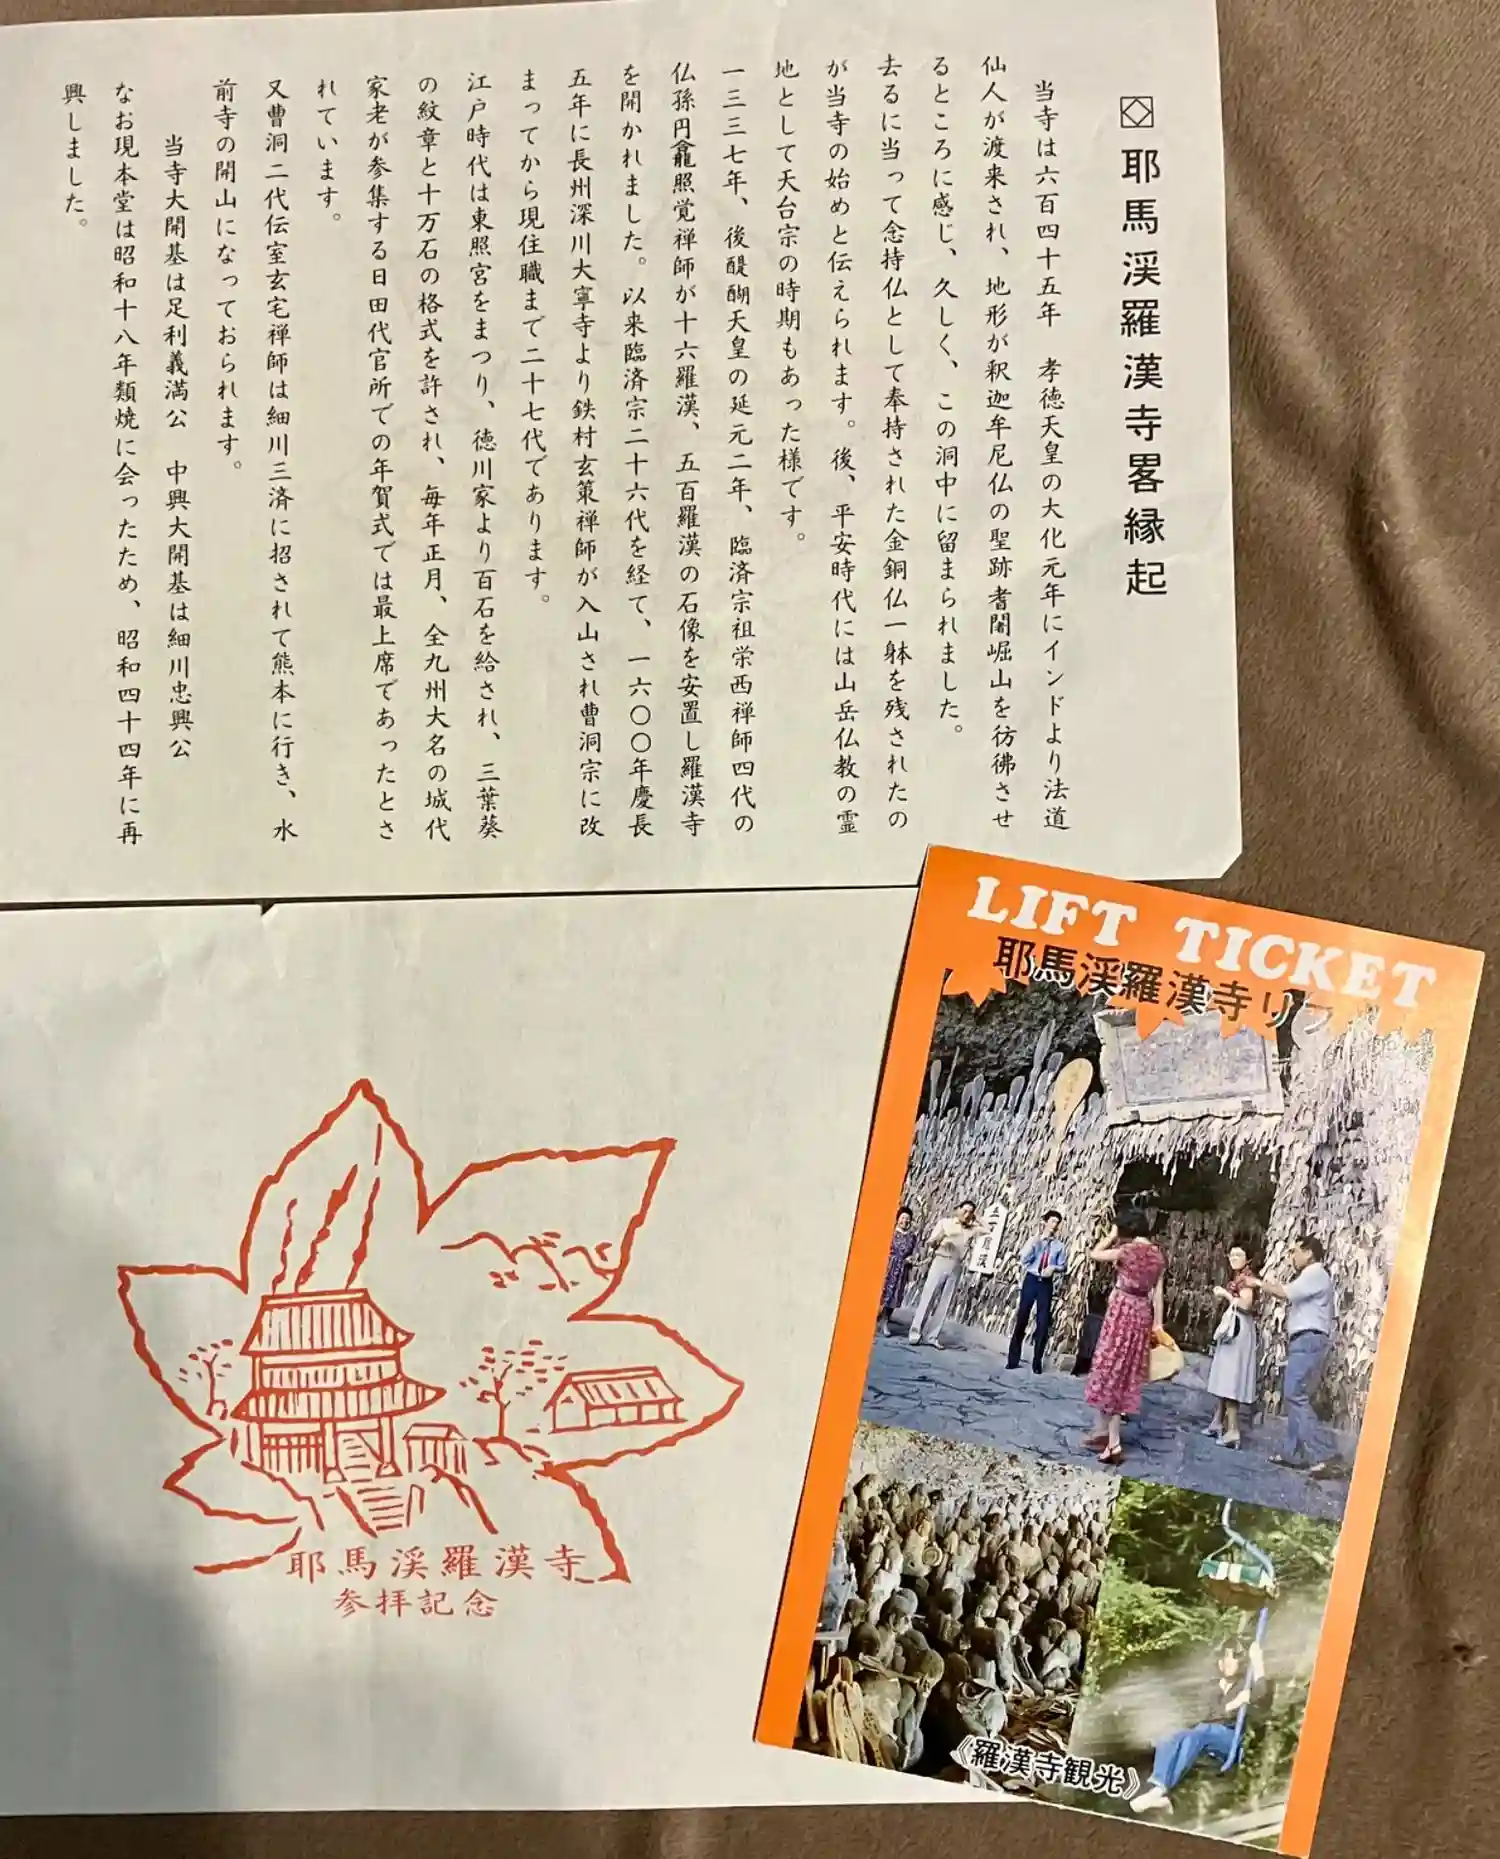 耶馬渓羅漢寺畧縁起
当寺は六百四十五年　孝徳天皇の大化元年にインドより法道
仙人が渡来され、地形が釈迦牟尼仏の聖跡耆闍崛山を彷彿させ
るところに感じ、久しく、この洞中に留まられました。
去るに当って念持仏として奉持された金銅仏一躰を残されたの
が当寺の始めと伝えられます。後、平安時代には山岳仏教の霊
地として天台宗の時期もあった様です。
一三三七年、後醍醐天皇の延元二年、臨済宗祖栄西禅師四代の
仏孫円龕照覚禅師が十六羅漢、五百羅漢の石像を安置し羅漢寺
を開かれました。以来臨済宗二十六代を経て、一六〇〇年慶長
五年に長州深川大寧寺より鉄村玄策禅師が入山され曹洞宗に改
まってから現住職まで二十七代であります。
江戸時代は東照宮をまつり、徳川家より百石を給され、三葉葵
の紋章と十万石の格式を許され、毎年正月、全九州大名の城代
家老が参集する日田代官所での年賀式では最上席であったとさ
れています。
又曹洞二代伝室玄宅禅師は細川三済に招されて熊本に行き、水
前寺の開山になっておられます。
当寺大開基は足利義満公　中興大開基は細川忠興公
なお現本堂は昭和十八年類焼に会ったため、昭和四十四年に再
興しました。
耶馬渓羅漢寺
参拝記念
LIFT TICKET
耶馬渓羅漢寺リフ
《羅漢寺観光》